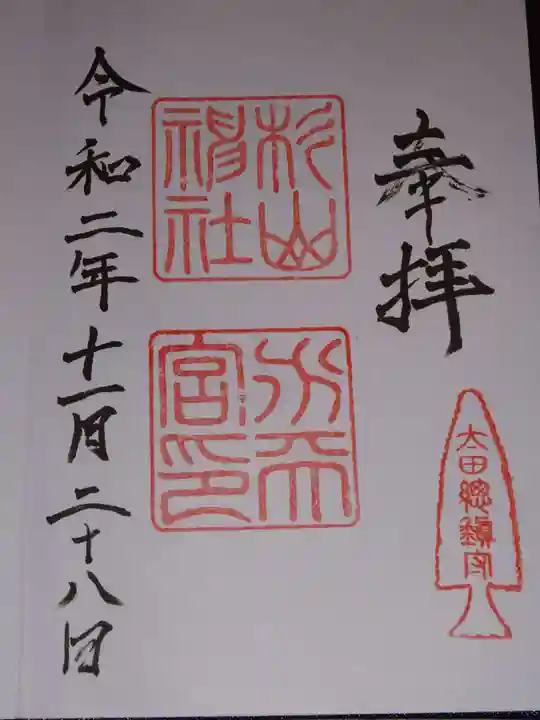 奉拝
太田總鎭守
杉山
神社
水天
宮印
令和二年十一月二十八日